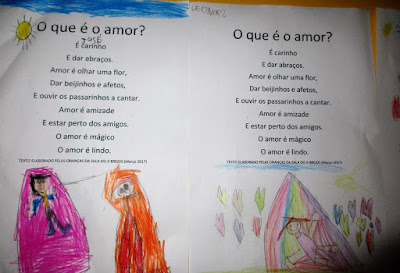 O que é o amor?
JOSÉ
É carinho
E dar abraços.
Amor é olhar uma flor,
Dar beijinhos e afetos,
E ouvir os passarinhos a cantar.
Amor é amizade
E estar perto dos amigos.
O amor é mágico
O amor é lindo.
TEXTO ELABORADO PELAS CRIANÇAS DA SALA DO JI BRUÇÓ (Março 2017)
LEONOR
O que é o amor?
É carinho
E dar abraços.
Amor é olhar uma flor,
Dar beijinhos e afetos,
E ouvir os passarinhos a cantar.
Amor é amizade
E estar perto dos amigos.
O amor é mágico
O amor é lindo.
TEXTO ELABORADO PELAS CRIANÇAS DA SALA DO JI BRUÇÓ (Março 2017)